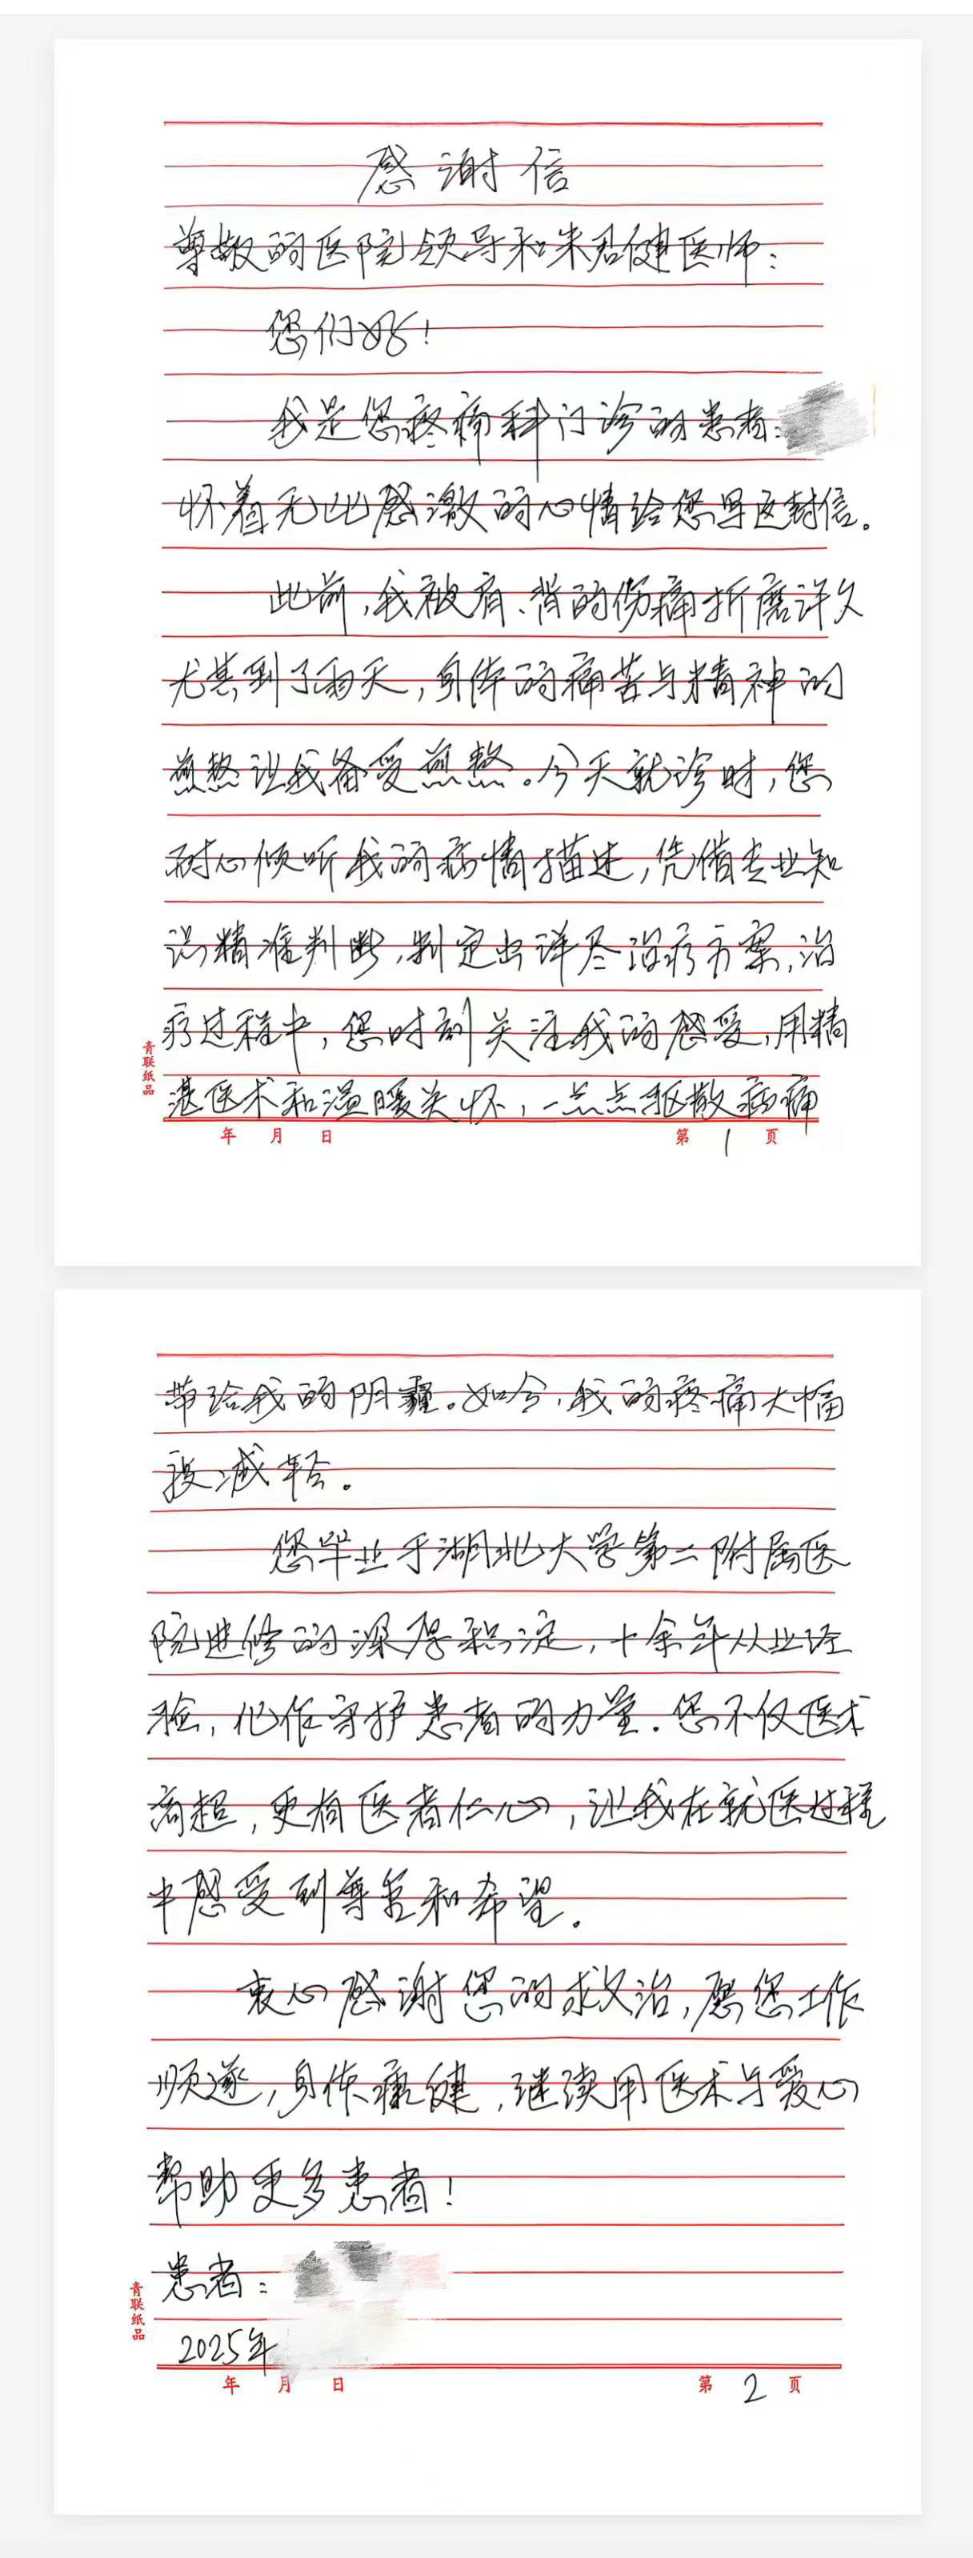 感谢信
尊敬的医院领导和朱君健医师：
您们好！
我是您疼痛科门诊的患者：
怀着无比感激的心情给您写这封信。
此前，我被肩、背的伤痛折磨许久
尤其到了雨天，身体的痛苦与精神的
煎熬让我备受煎熬。今天就诊时，您
耐心倾听我的病情描述，凭借专业知
识精准判断，制定出详尽治疗方案，治
疗过程中，您时刻关注我的感受，用精
湛医术和温暖关怀，一点点驱散病痛
青联纸品
年 月 日 第 1 页
带给我的阴霾。如今，我的疼痛大幅
段减轻。
您毕业于湖北大学第二附属医
院进修的深厚积淀，十余年从业经
验，化作守护患者的力量。您不仅医术
高超，更有医者仁心，让我在就医过程
中感受到尊重和希望。
衷心感谢您的救治，愿您工作
顺遂，身体康健，继续用医术与爱心
帮助更多患者！
患者：
2025年
青联纸品
年 月 日 第 2 页